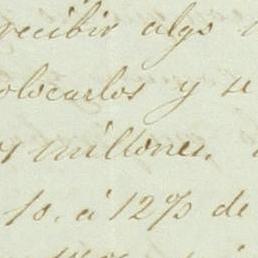 recibir algo
olocarlos y se
millones.
10. á 12% de